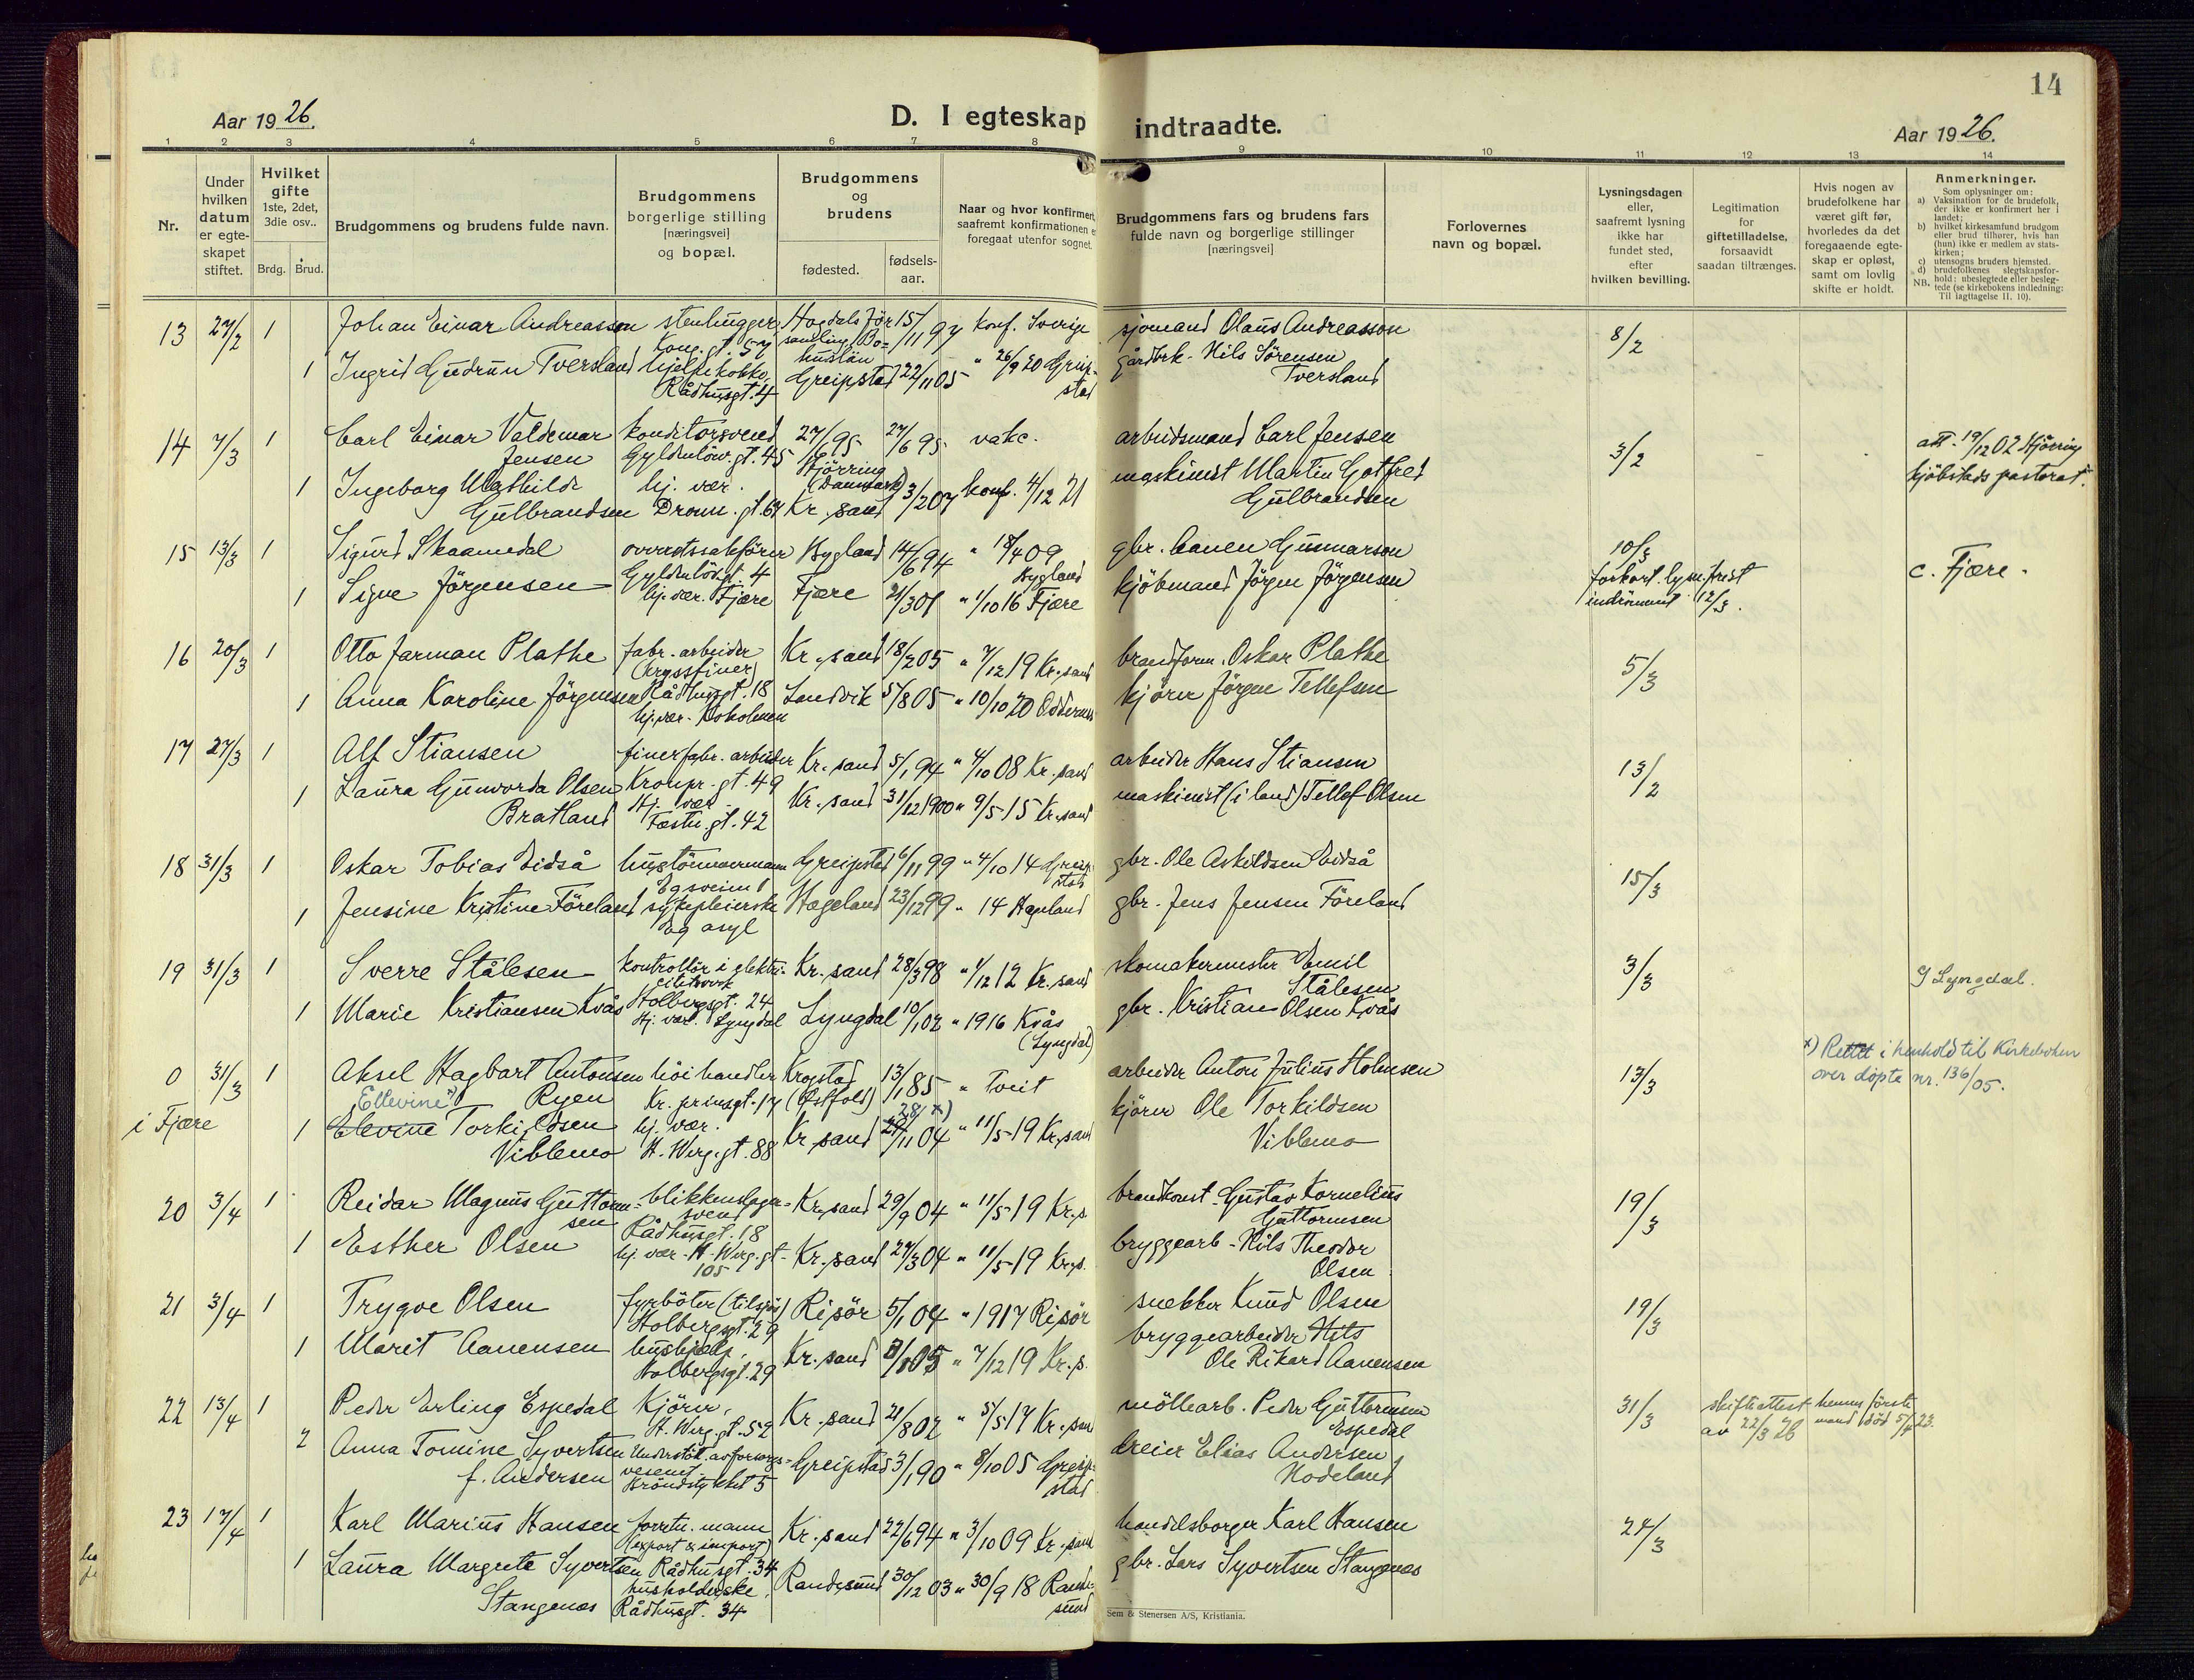 14
Aar 1926.
D. I egteskap indtraadte.
Aar 1926.
1 2 3 4 5 6 7 8 9 10 11 12 13 14
Nr.
Under hvilken datum er egteskapet stiftet.
Hvilket gifte 1ste, 2det, 3die osv..
Brdg. Brud.
Brudgommens og brudens fulde navn.
Brudgommens borgerlige stilling [næringsvei] og bopæl.
Brudgommens og brudens
fødested.
fødselsaar.
Naar og hvor konfirmert,
saafremt konfirmationen
foregaat utenfor sognet.
Brudgommens fars og brudens fars
fulde navn og borgerlige stillinger
[næringsvei]
Forlovernes
navn og bopæl.
Lysningsdagen
eller,
saafremt lysning
ikke har
fundet sted,
efter
hvilken bevilling.
Legitimation
for
giftetilladelse,
forsaavidt
saadan tiltrænges.
Hvis nogen av
brudefolkene har
været gift før,
hvorledes da det
foregaaende egte-
skap er opløst,
samt om lovlig
skifte er holdt.
Anmerkninger.
Som oplysninger om:
a) Vaksination for de brudefolk, der ikke er konfirmert her i landet;
b) hvilket kirkesamfund brudgom eller brud tilhører, hvis han (hun) ikke er medlem av statskirken;
c) utensogns bruders hjemsted.
d) brudefolkenes slegtskapsforhold: ubeslegtede eller beslegtede (se kirkebokens indledning:
NB. Til iagttagelse II. 10).
13 27/2 1 Johan Einar Andreasson stenhugger Kong. gt. 57 15/11 97 konf. Sverige sjömand Olaus Andreasson 8/2
1 Ingrid Gudrun Tversland Rådhusgt. 4 Greipstad 22/11 05 " 26/9 20 Greipstad gårdbrk. Nils Sörensen Tversland
14 7/3 1 Carl Einar Valdemar Jensen konditorsvend Gyldenlöw. gt. 45 27/6 95 Hjörring (Danmark) 27/6 95 vakc. arbeidsmand Carl Jensen 3/2 att. 19/12 02 Hjörring kjöbstads pastorat.
1 Ingeborg Mathilde Gulbrandsen hj. vær. Dronn. gt. 67 Kr. sand 3/2 07 konf. 4/12 21 maskinist Martin Gotfred Gulbrandsen
15 13/3 1 Sigurd Skaamedal overretssakförer Gyldenlövgt. 4 Bygland 14/6 94 " 18/4 09 Bygland gbr. Aanen Gunnarson 10/3 forkort. lysn. frist indrömmet 12/3. c. Fjære.
1 Signe Jörgensen hj. vær. Fjære Fjære 21/3 01 " 1/10 16 Fjære kjöbmand Jörgen Jörgensen
16 20/3 1 Otto Jarman Plathe fabr. arbeider (kryssfiner) Rådhusgt. 18 Kr. sand 18/2 05 " 7/12 19 Kr. sand brandform. Oskar Plathe 5/3
1 Anna Karoline Jörgensen hj. vær. Landvik 5/8 05 " 10/10 20 Oddernes kjörer Jörgen Tellefsen
17 27/3 1 Alf Stiansen finerfabr. arbeider Kronpr. gt. 49 Kr. sand 5/1 94 " 4/10 08 Kr. sand arbeider Hans Stiansen 13/2
1 Laura Gunvorda Olsen Bratland Hj. vær. Festn. gt. 42 Kr. sand 31/12 1900 " 9/5 15 Kr. sand maskinist (i land) Tellef Olsen
18 31/3 1 Oskar Tobias Eidså hustömmermann Greipstad 6/11 99 " 4/10 14 Greipstad gbr. Ole Askildsen Eidså 15/3
1 Jensine Kristine Föreland sykepleierske Eg asyl Hægeland 23/12 99 " 14 Hægeland gbr. Jens Jensen Föreland
19 31/3 1 Sverre Stålesen kontrollör i elektricitetsverk Holbergsgt. 24 Kr. sand 28/3 98 " 1/12 12 Kr. sand skomakermester Emil Stålesen 3/3 I Lyngdal.
1 Marie Kristiansen Kvås Hj. vær. Lyngdal Lyngdal 10/1 02 " 1916 Kvås (Lyngdal) gbr. Kristian Olsen Kvås
0 31/3 1 Aksel Hagbart Antonsen Ryen höihandler Kr. prinsgt. 17 Krogstad (Østfold) 13/1 85 " Tveit arbeider Anton Julius Holmsen 13/3 x) Rettet i henhold til Kirkeboken over döpte nr. 136/05.
i Fjære 1 "Ellevine" Elevine Torkildsen Viblemo hj. vær. H. Werg. gt. 88 Kr. sand 28/ x) 29/11 04 " 11/5 19 Kr. sand kjörer Ole Torkildsen Viblemo
20 3/4 1 Reidar Magnus Guttormsen blikkenslagersvend Rådhusgt. 18 Kr. sand 29/9 04 " 11/5 19 Kr.s. brandkonst. Gustav Kornelius Guttormsen 19/3
1 Esther Olsen hj. vær. H. Werg. gt. 105 Kr. sand 27/3 04 " 11/5 19 Kr.s. bryggearb. Nils Theodor Olsen
21 3/4 1 Trygve Olsen fyrböter (tilsjös) Holbergsgt. 29 Risör 5/1 04 " 1917 Risör snekker Knud Olsen 19/3
1 Marit Aanensen hushjælp, Holbergsgt. 29 Kr. sand /8 05 " 7/12 19 Kr. s. bryggearbeider Nils Ole Rikard Aanensen
22 13/4 1 Peder Erling Espedal Kjörer, H. Werg. gt. 52 Kr. sand 21/8 02 " 5/5 17 Kr. sand möllearb. Peder Guttormsen Espedal 31/3 skifteattest av 22/3 26 hennes förste mand död 5/4 23.
2 Anna Tomine Syvertsen f. Andersen Understöt. av forsorgsvesenet Bröndstykket 5 Greipstad 3/1 90 " 8/10 05 Greipstad dreier Elias Andersen Hodeland
23 17/4 1 Karl Marius Hansen forretn. mann (export & import) Rådhusgt. 34 Kr. sand 22/6 94 " 3/10 09 Kr. sand handelsborger Karl Hansen 24/3
1 Laura Margrete Syvertsen Stangenes husholderske, Rådhusgt. 34 Randesund 30/12 03 " 30/9 18 Randesund gbr. Lars Syvertsen Stangenes
Sem & Stenersen A/S, Kristiania.